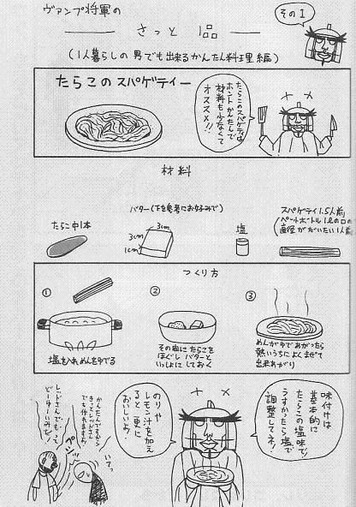 ヴァンプ将軍の
さっと1品
その1
(1人暮らしの男でも出来るかんたん料理編)
たらこのスパゲティー
たらこのスパゲは
ホントかんたんで
材料も少なくて
オススメ!!
材料
たらこ中1本
バター(下を参考にお好みで)
3cm
3cm
1cm
塩
スパゲティ1.5人前
(ペットボトル1ℓの口の
直径がだいたい1人前)
つくり方
①
塩を入れめんをゆでる
②
その間にたらこを
ほぐしバターと
いっしょにしておく
③
めんがゆであがったら
熱いうちによくまぜて
出来あがり
味付けは
基本的に
たらこの塩味で!
うすかったら塩で
調整してネ!
のりや
レモン汁を加え
ると更に
おいしいョ!
かんたんでしょ
きっとレッドさん
でも作れますョ!
いてっ